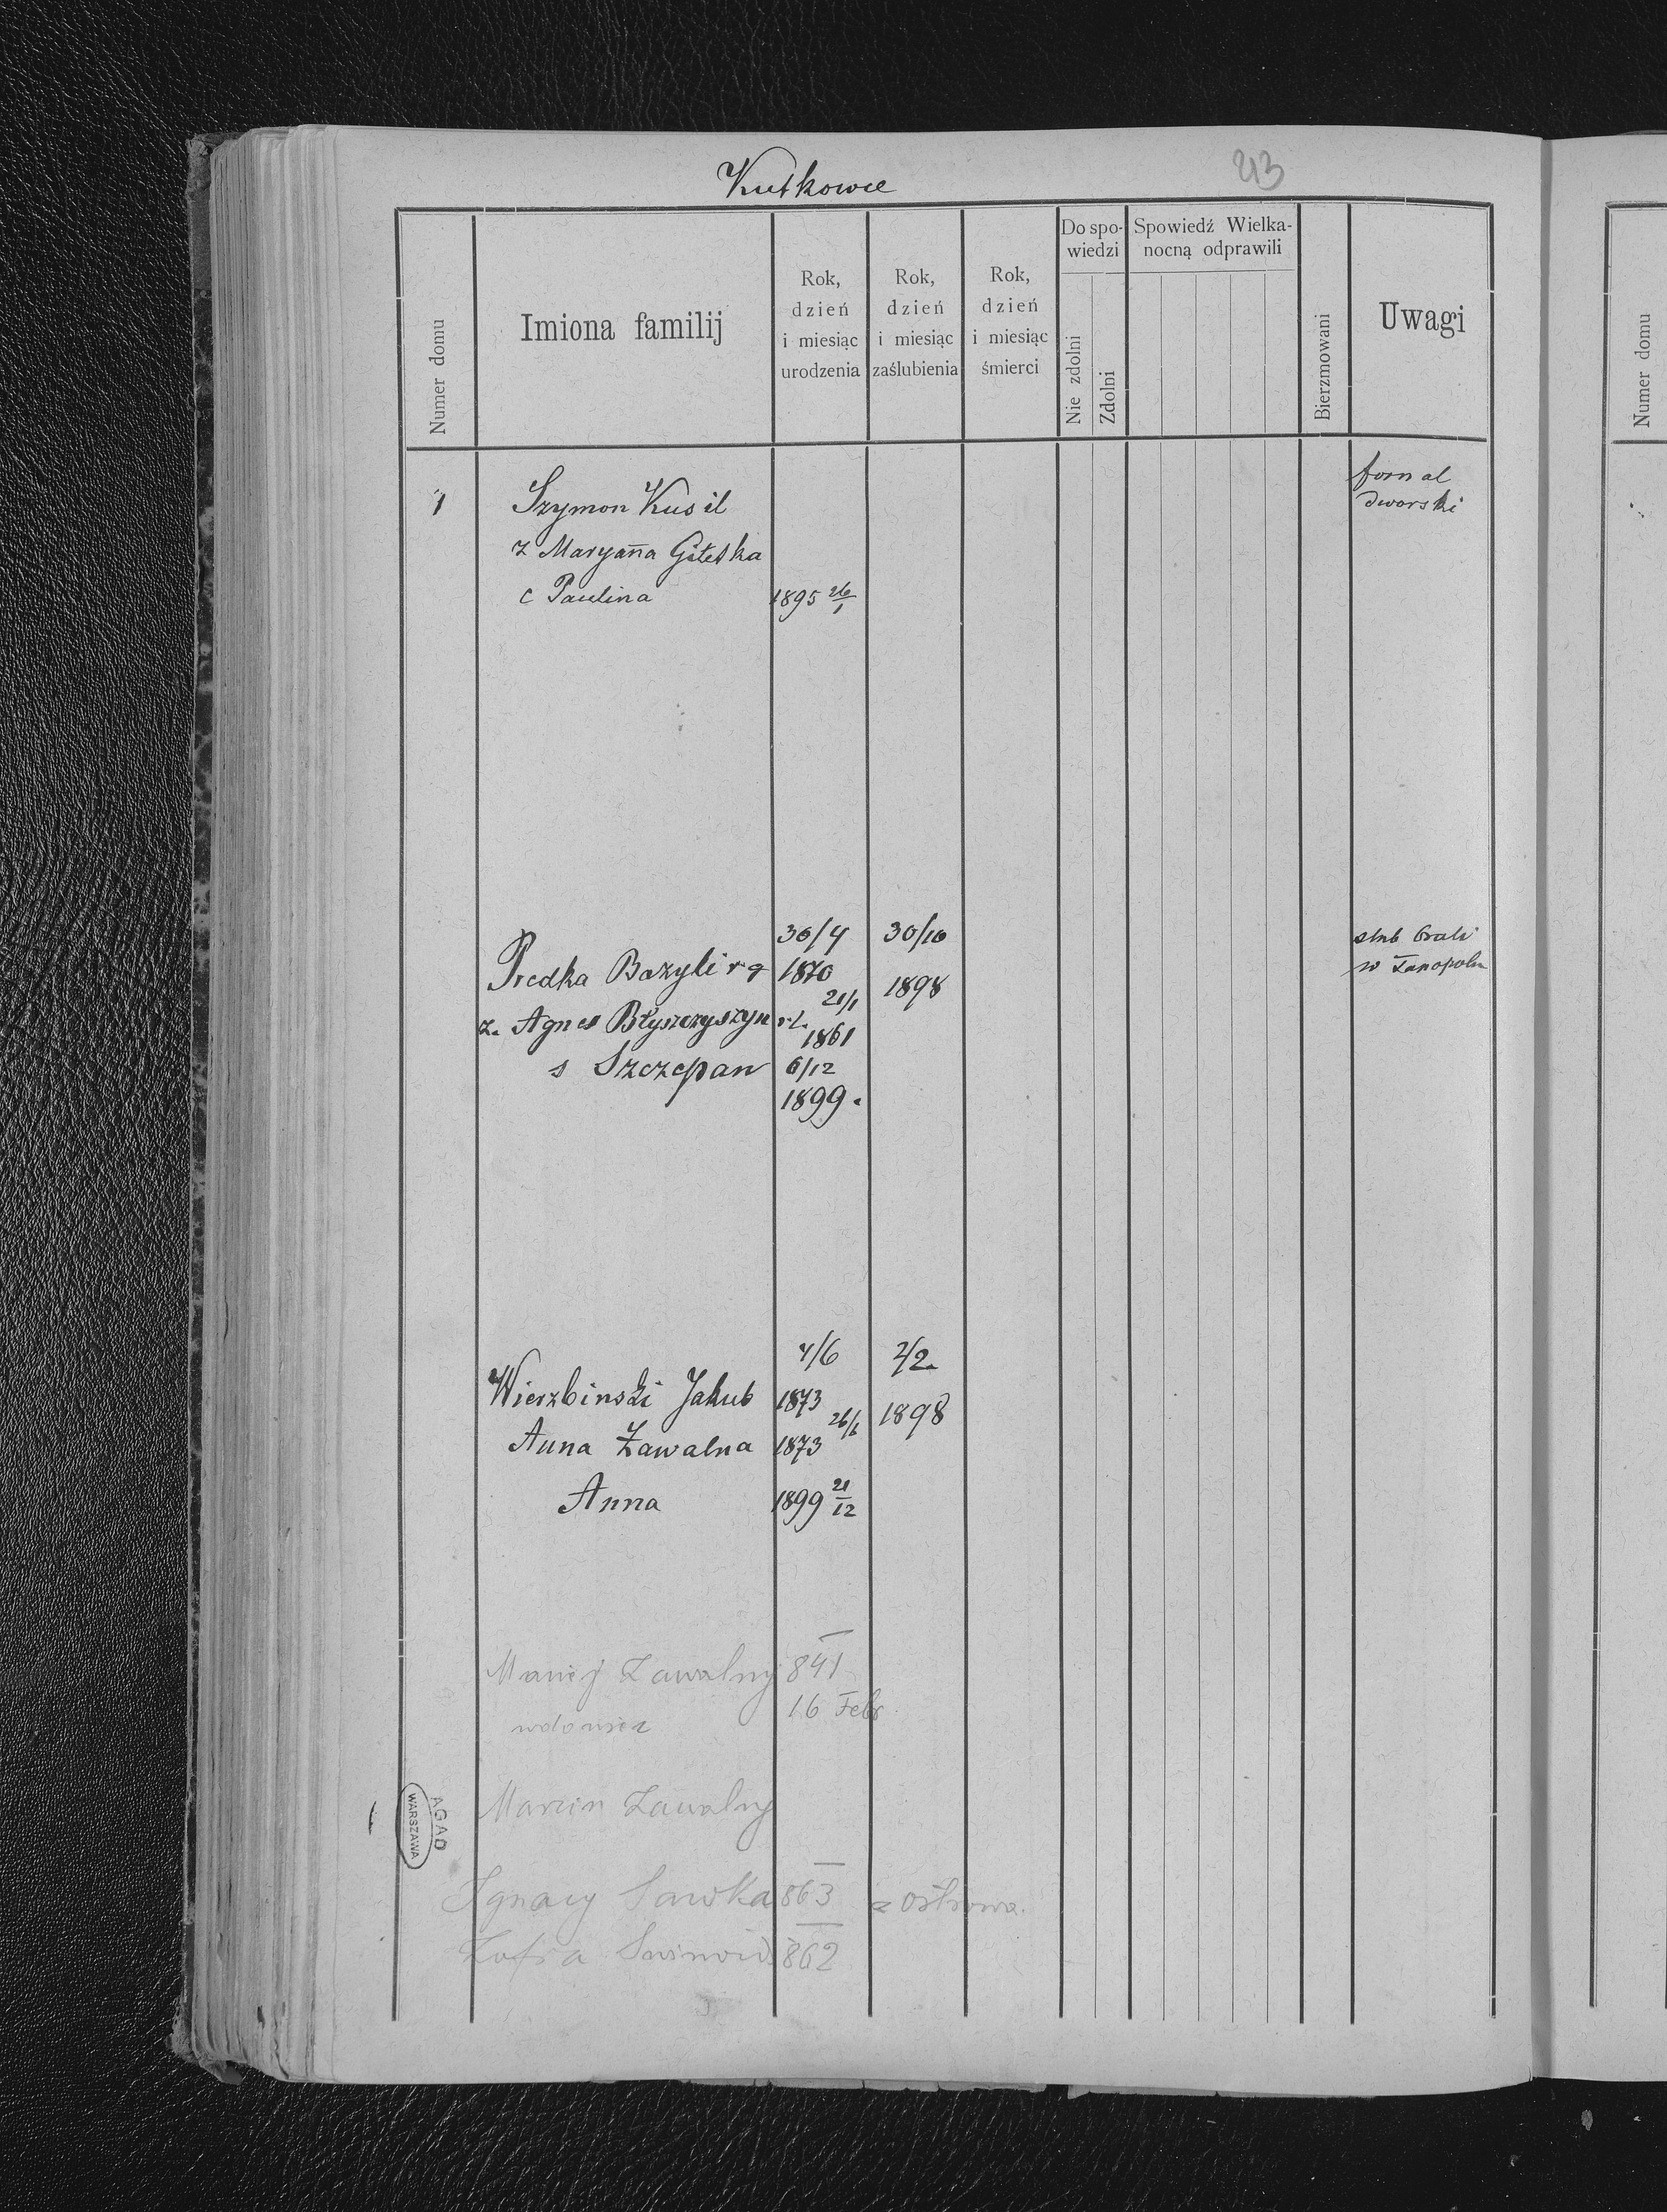 Kutkowce
43
Numer domu
Imiona familij
Rok, dzień i miesiąc urodzenia
Rok, dzień i miesiąc zaślubienia
Rok, dzień i miesiąc śmierci
Do spowiedzi
Nie zdolni
Zdolni
Spowiedź Wielkanocną odprawili
Bierzmowani
Uwagi
Numer domu
1 Szymon Kusil fornal
dworski
z Maryanna
c Paulina 1895 26/1
30/4 30/10
Predka Bazyli rg 1870 1898
ślub brali
w Tarnopolu
21/1
z. Agnes Błyszczyszyn r.l. 1861
s Szczepan 6/12
1899.
4/6 2/2
Wierzbinski Jakub 1873 1898
26/6
Anna Zawalna 1873
Anna 1899 21/12
Maciej Zawalny 841
wdowiec 16 Febr
Marcin Zawalny
Ignacy Sawka 863 z Ostrowa.
Zofia 862
AGAD
WARSZAWA